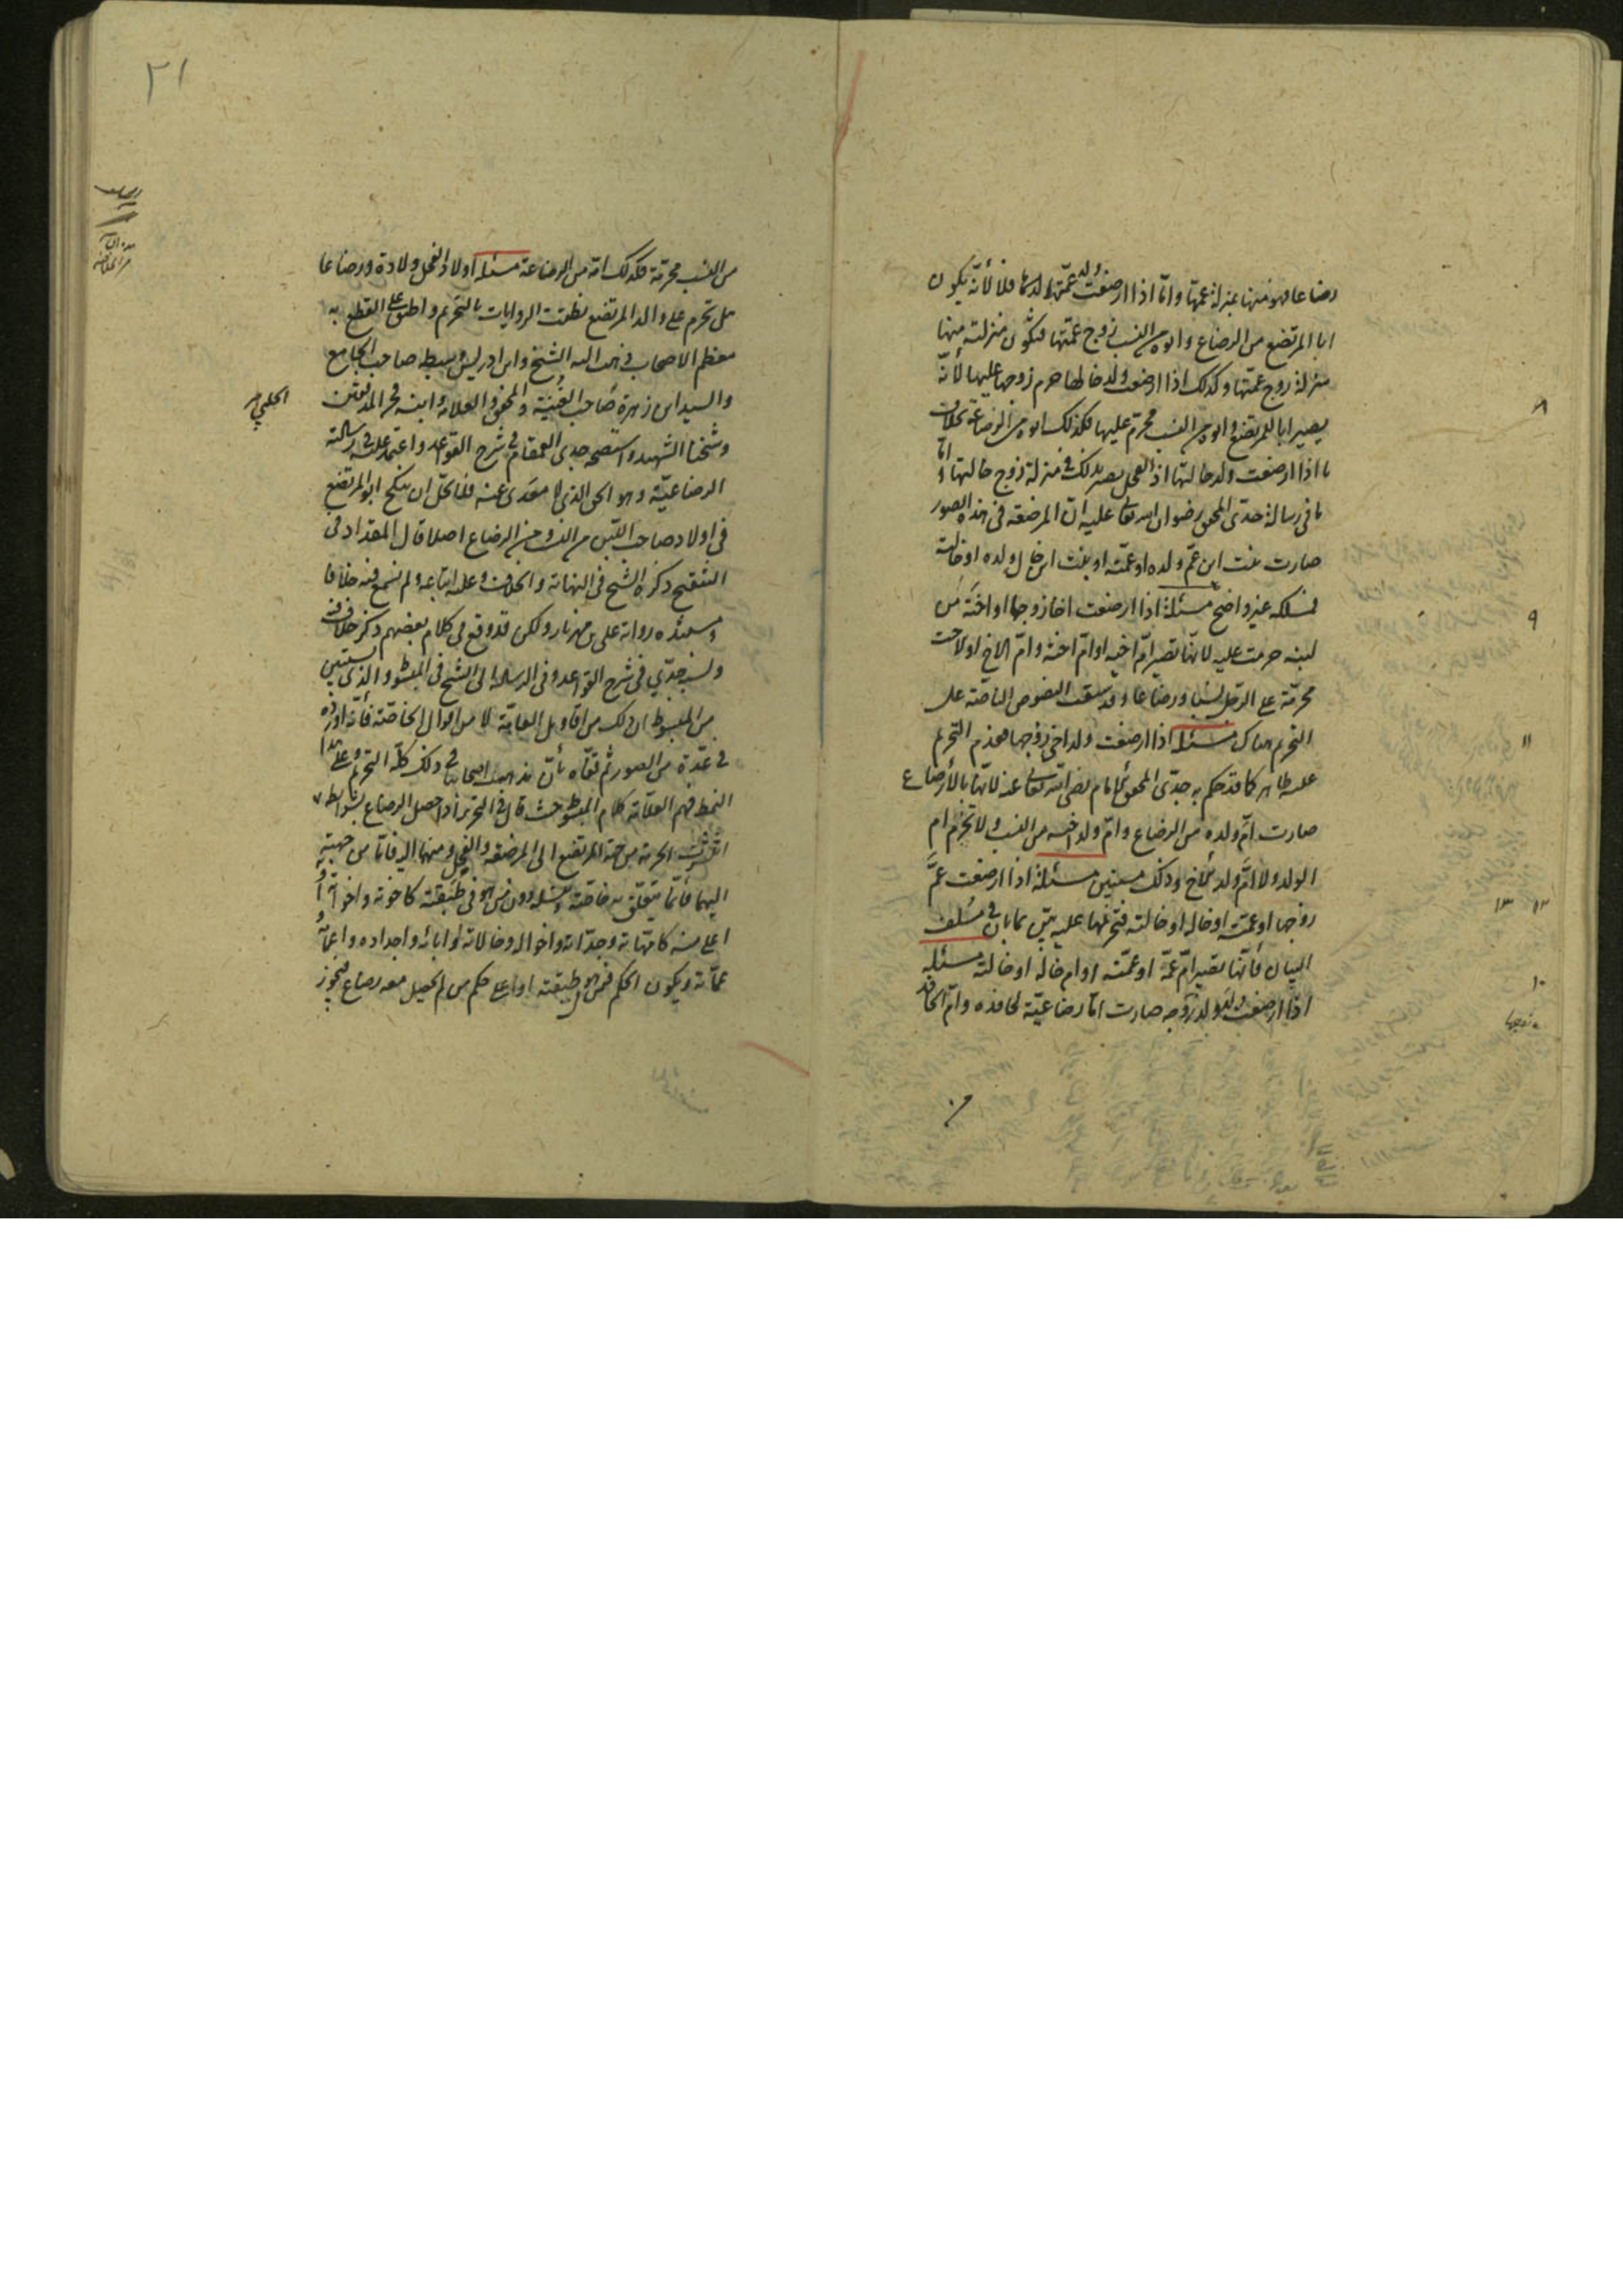 رضاعا فهو منها بمنزلة عمها وامّا اذا ارضعت ولد عمّتها فلأنّه يكون
ابا المرتضع من الرضاع وابوه من النسب زوج عمّتها فتكون منزلته منها
منزلة زوج عمّتها وكذلك اذا ارضعت ولد خالها حرم زوجها عليها لأنّه
يصير ابا للمرتضع وابوه من النسب محرّم عليها فكذلك ابوه من الرضاعة بخلاف
ما اذا ارضعت ولد خالتها اذ الفحل يصير بذلك في منزلة زوج خالتها وامّا
ما في رسالة جدّى المحقق رضوان الله تعالى عليه انّ المرضعة في هذه الصور
صارت بنت ابن عمّ ولده او عمّته او بنت ابن خال ولده او خالته
فمسلكه غير واضح مسئلة اذا ارضعت اخا زوجها او اخته من
لبنه حرمت عليه لانّها تصير امّ اخيه او امّ اخته وامّ الاخ او الاخت
محرّمة على الرجل نسبا ورضاعا وقد سبقت النصوص الناصّة على
التحريم هناك مسئلة اذا ارضعت ولد اخى زوجها فعدم التحريم
عليه ظاهر كما قد حكم به جدّى المحقق الامام رضى الله تعالى عنه لانّها بالارضاع
صارت امّ ولده من الرضاع وامّ ولد اخيه من النسب ولا تحرم ام
الولد ولا امّ ولد الاخ وذلك مستبين مسئلة اذا ارضعت عمّ
زوجها او عمّته او خاله او خالته فتحريمها عليه بيّن بما بان في سلف
البيان فانّها تصير امّ عمّه او عمّته او ام خاله او خالته مسئلة
اذا ارضعت ولد ولد زوجها صارت امّا رضاعيّة لحافده وامّ الحافد
٨
٩
١١
١٢ ١٣
١٠
زوجها
من
٢١
من النسب محرّمة فكذلك امّه من الرضاعة مسئلة اولاد الفحل ولادة ورضاعا
هل تحرم على والد المرتضع نطقت الروايات بالتحريم واطبق على القطع به
معظم الاصحاب ذهب اليه الشيخ وابن ادريس وسبطه صاحب الجامع
والسيد ابن زهرة صاحب الغنية والمحقق والعلامة وابنه فخر المدققين
الحلبي
وشيخنا الشهيد واستصحه جدى القمقام في شرح القواعد واعتمد عليه في رسالته
الرضاعيّة وهو الحق الذى لا معدى عنه فلا يحلّ ان ينكح ابو المرتضع
في اولاد صاحب اللبن من النسب ومن الرضاع اصلا قال المقداد في
التنقيح ذكره الشيخ في النهاية والخلاف وعليه اتباعه ولم نسمع فيه خلافا
ومستنده رواية على بن مهزيار ولكن قد وقع في كلام بعضهم ذكر خلاف فيه
ونسبه جدّي في شرح القواعد وفي الرسالة الى الشيخ في المبسوط والذى يستبين
من المبسوط ان ذلك من اقاويل العامّة لا من اقوال الخاصّة فانّه اورده
في عدّة من الصور ثم تقفّاه بأنّ مذهب اصحابنا في ذلك كلّه التحريم وعلى هذا
النمط فهم العلّامة كلام المبسوط حيث قال في التحرير اذا حصل الرضاع بشرايطه
انتشرت الحرمة من جهة المرتضع الى المرضعة والفحل ومنهما اليه فامّا من جهته
اليهما فانّما يتعلّق به خاصّة وبنسله دون من هو في طبقته كاخوته واخواته او
اعلى منه كامّهاته وجدّاته واخواله وخالاته او ابائه واجداده واعمامه و
عمّاته ويكون الحكم فمن هو في طبقته او اعلى حكم من لم يحصل معه رضاع فيجوز